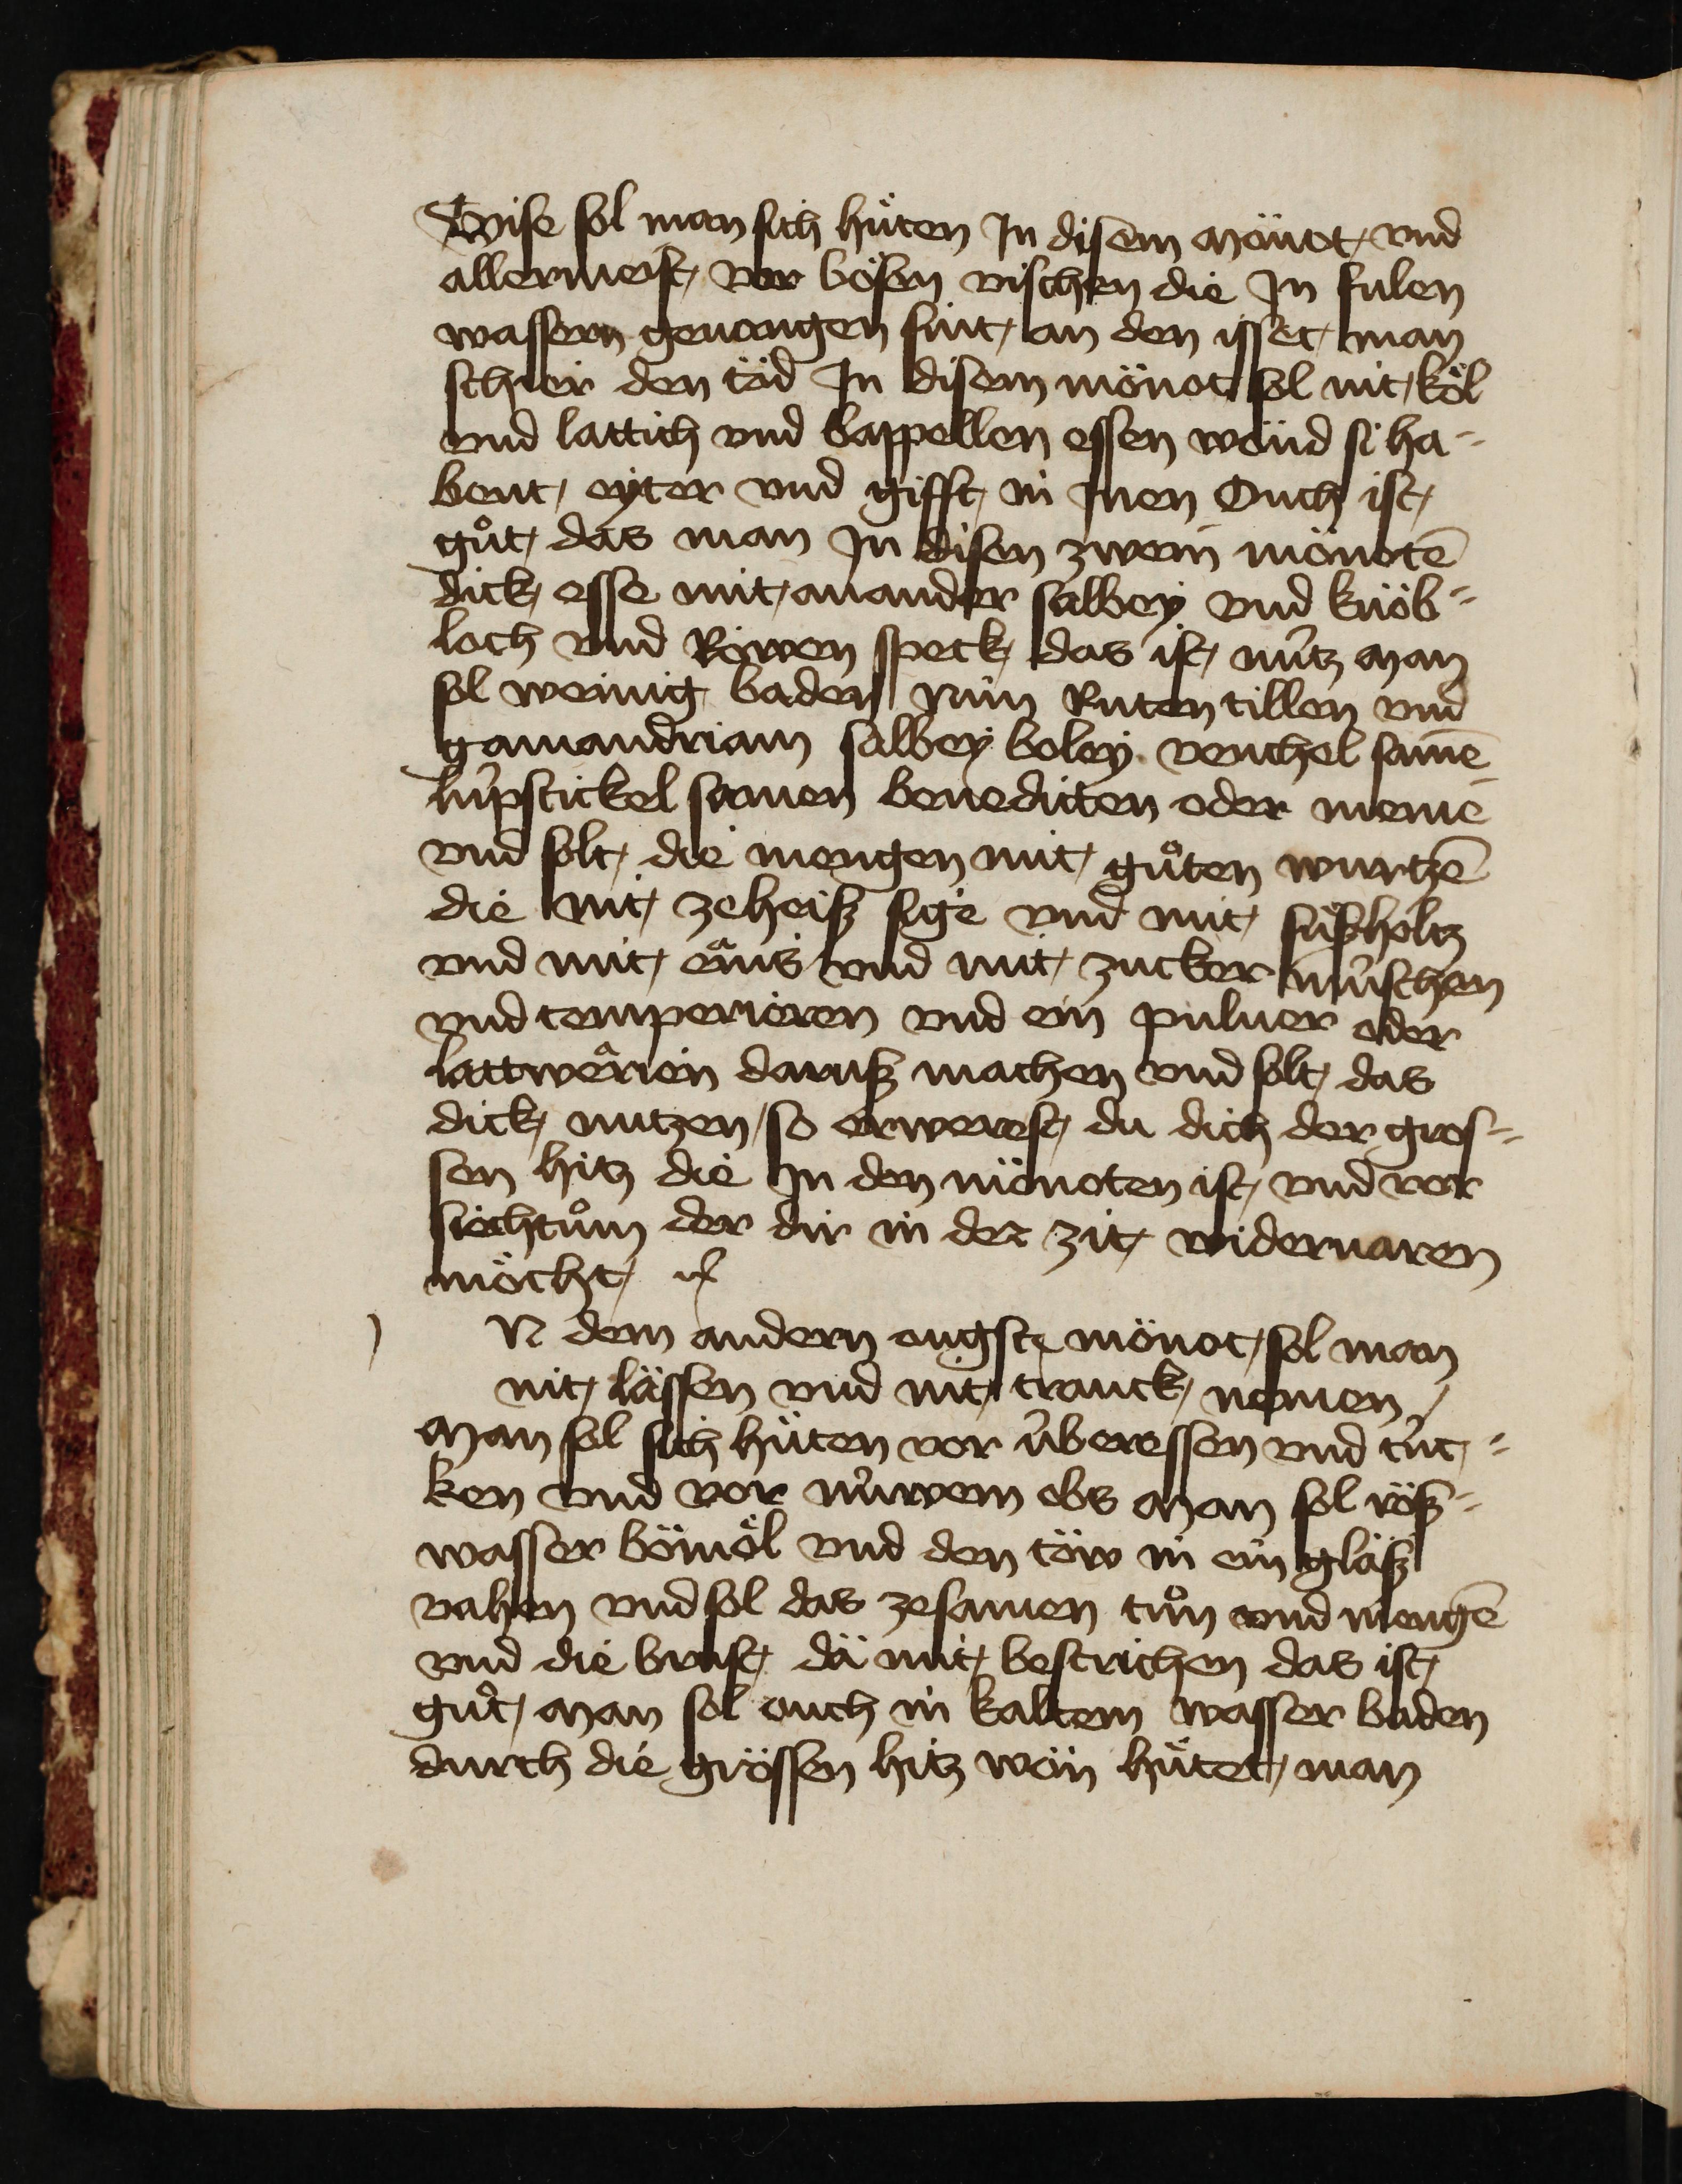 Wise sol man sich hüten In disem monot vnd
allermeist vor bösen vischen die In fulen
wassern geuangen sint an den isset man
schier den töd In disem mönot sol nit köl
vnd lattich vnd bappellen essen wönd si ha-
bent eyter vnd gifft in Inen Ouch ist
gůt das man In disen zwein mönotē
dick esse mit anander salbey vnd knöb-
loch vnd Röwen speck das ist nútz man
sol wenig baden Nim Ruten tillen vnd
gamandriam salbey boley venchel samē
lúpstickel samen benedicten oder menie
vnd solt die mengen mit gůten wurtzē
die nit ze heiß sige vnd mit süßholtz
vnd mit änis vnd mit zucker múschen
vnd temperieren vnd ein puluer oder
lattwärien daruß machen vnd solt das
dick nutzen / so erwerest du dich der gros-
sen hitz die In den mönoten ist vnd vor
siechtům der dir in der zit widernaren
möcht
N dem andern ougste mönot sol man
nit lässen vnd nit tranck nemen /
Man sol sich hüten vor úberessen vnd trú-
ken vnd vor núwem obs Man sol röß-
wasser bömöl vnd den töw in ein gläß
vahen vnd sol das zesamen tůn vnd mengē
vnd die brust dä mit bestrichen das ist
gůt Man sol ouch in kaltem wasser baden
durch die grössen hitz wön hütet man